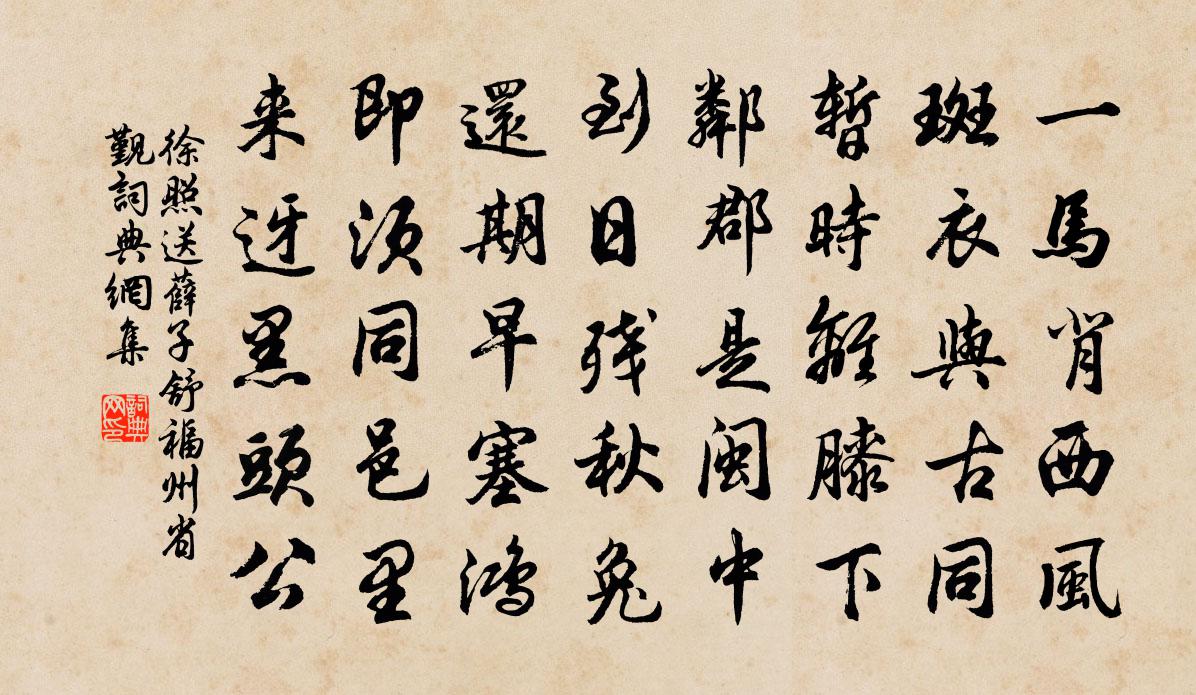 一馬背西風
斑衣與古同
暫時離膝下
鄰郡是閩中
到日残秋兔
還期早塞鴻
即須同邑里
来迓黑頭公
徐照送薛子舒福州省
觐詞典網集
詞典网印